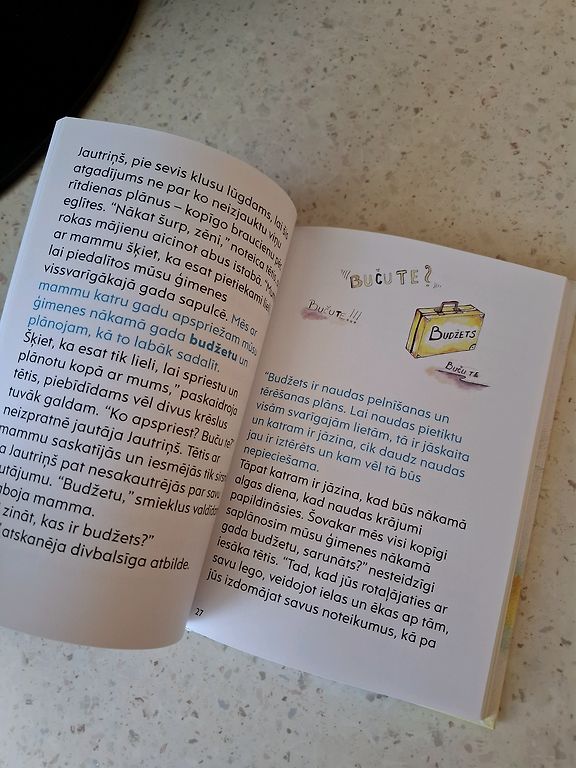 Jautriņš, pie sevis klusu lūgdams, lai šis
atgadījums ne par ko neizjauktu viņu
rītdienas plānus – kopīgo braucienu pēc
eglītes. “Nākat šurp, zēni,” noteica tētis,
rokas mājienu aicinot abus istabā.
ar mammu šķiet, ka esat pietiekami lieli,
lai piedalītos mūsu ģimenes
vissvarīgākajā gada sapulcē. Mēs ar
mammu katru gadu apspriežam mūsu
ģimenes nākamā gada budžetu un
plānojam, kā to labāk sadalīt.
Šķiet, ka esat tik lieli, lai spriestu un
plānotu kopā ar mums,” paskaidroja
tētis, piebīdīdams vēl divus krēslus
tuvāk galdam. “Ko apspriest? Buču te?”
neizpratnē jautāja Jautriņš. Tētis ar
mammu saskatījās un iesmējās tik
Jautriņš pat nesakautrējās par savu
“Budžetu,” smieklus
mamma.
zināt, kas ir budžets?”
atskanēja divbalsīga atbilde.
BUČUTE?
BUČUTE!!!
BUDŽETS
BUČUTE
“Budžets ir naudas pelnīšanas un
tērēšanas plāns. Lai naudas pietiktu
visām svarīgajām lietām, tā ir jāskaita
un katram ir jāzina, cik daudz naudas
jau ir iztērēts un kam vēl tā būs
nepieciešama.
Tāpat katram ir jāzina, kad būs nākamā
algas diena, kad naudas krājumi
papildināsies. Šovakar mēs visi kopīgi
saplānosim mūsu ģimenes nākamā
gada budžetu, sarunāts?” nesteidzīgi
iesāka tētis. “Tad, kad jūs rotaļājaties ar
savu lego, veidojot ielas un ēkas ap tām,
jūs izdomājat savus noteikumus, kā pa
27